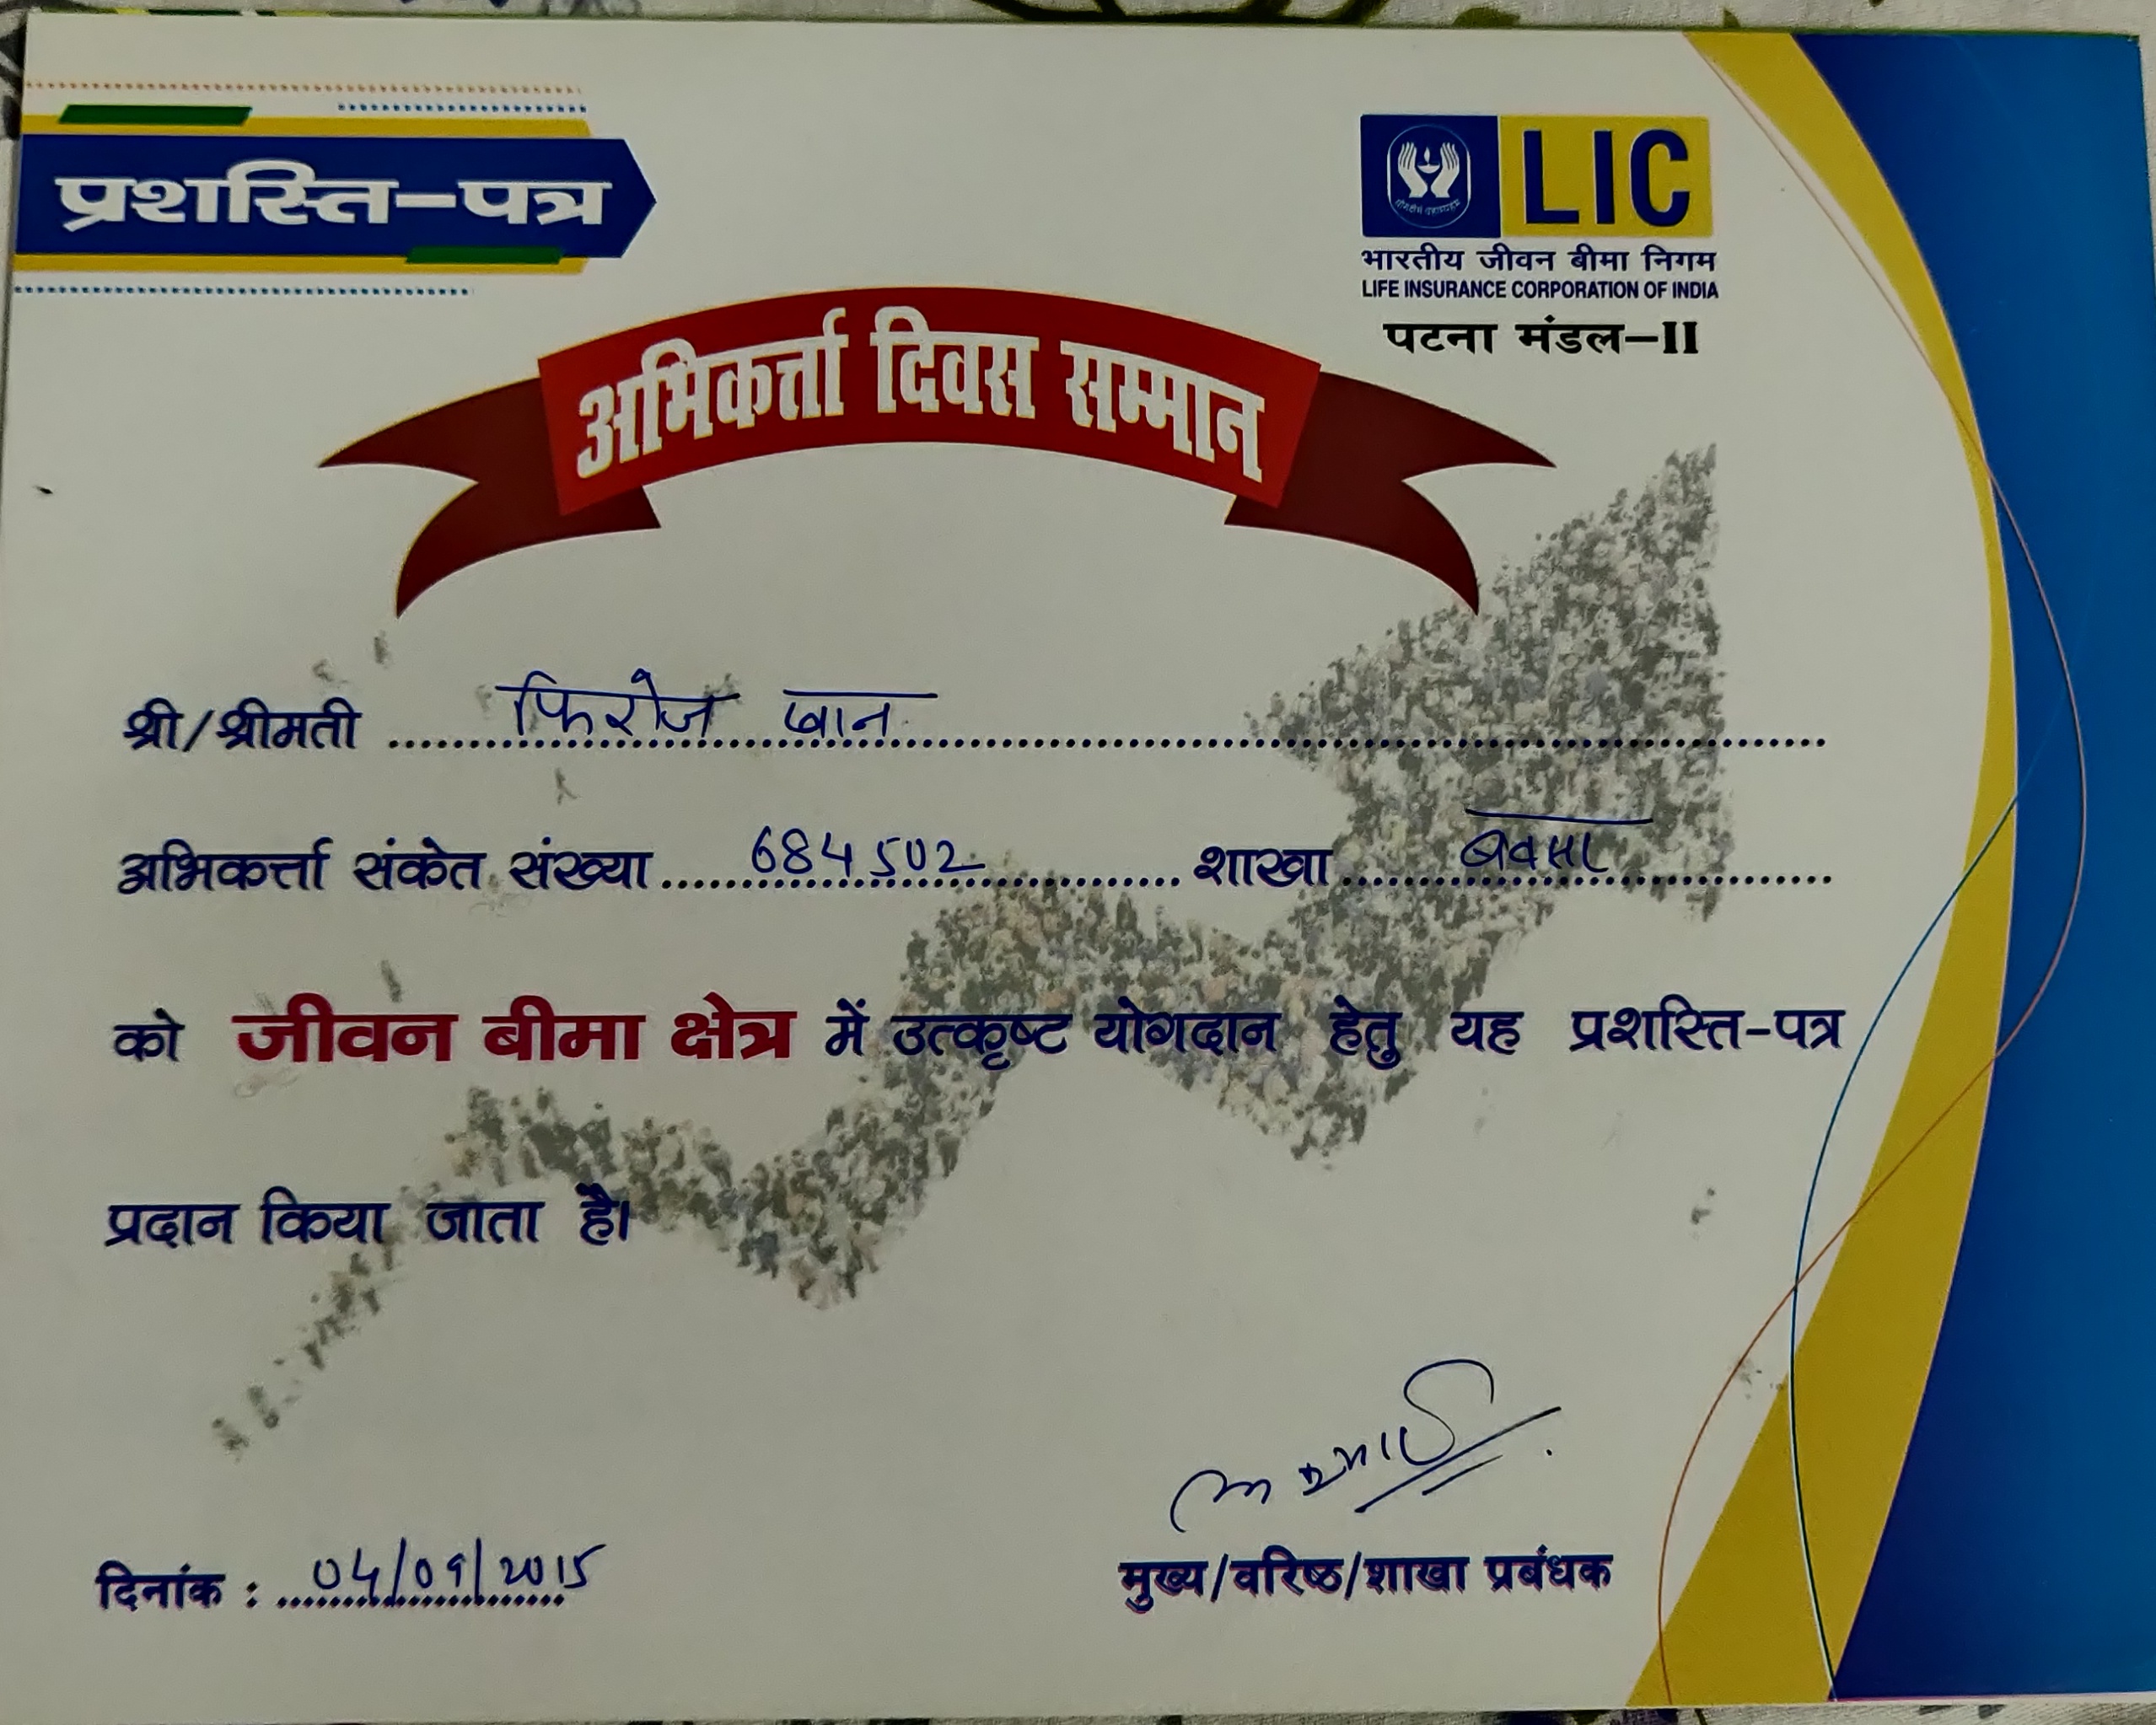 प्रशस्ति-पत्र
LIC
भारतीय जीवन बीमा निगम
LIFE INSURANCE CORPORATION OF INDIA
पटना मंडल-II
अभिकर्त्ता दिवस सम्मान
श्री/श्रीमती फिरोज खान
अभिकर्त्ता संकेत संख्या 684502 शाखा बक्सर
को जीवन बीमा क्षेत्र में उत्कृष्ट योगदान हेतु यह प्रशस्ति-पत्र
प्रदान किया जाता है।
दिनांक : 04/09/2015
मुख्य/वरिष्ठ/शाखा प्रबंधक